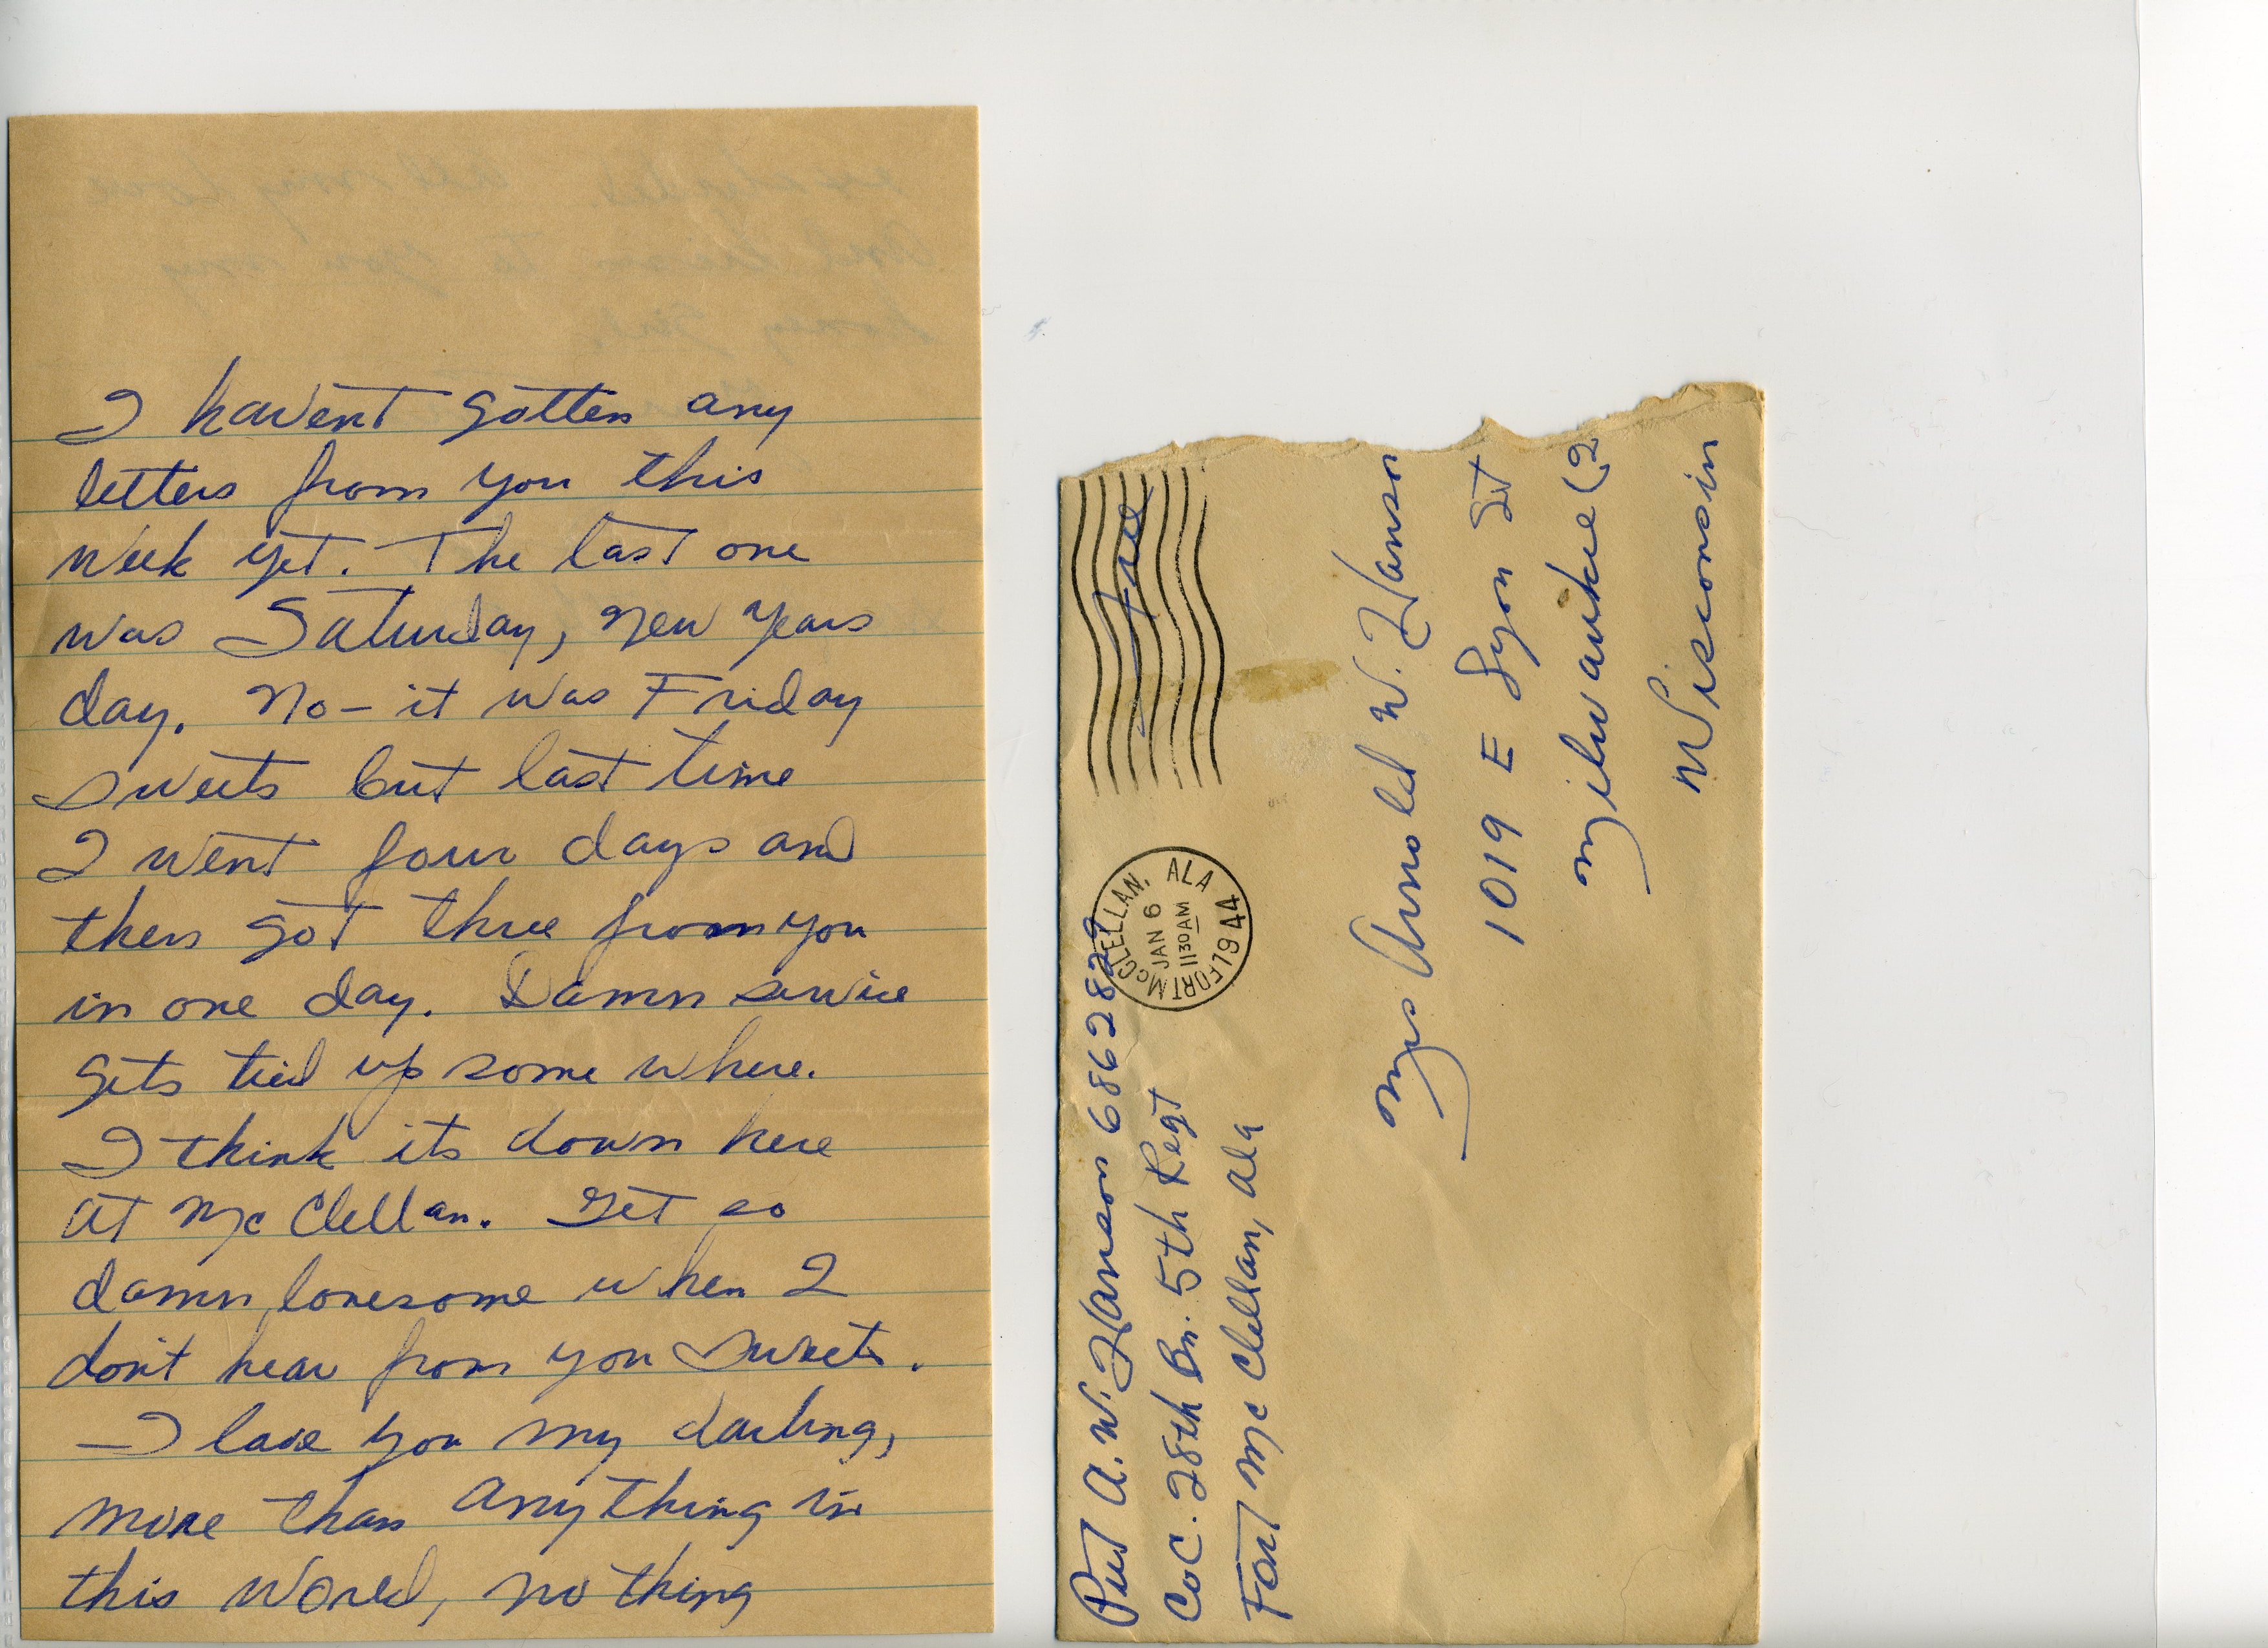 I havent gotten any
letters from you this
week yet. The last one
was Saturday, New Years
day. No - it was Friday
sweets but last time
I went four days and
then got three from you
in one day. Damn service
gets tied up some where.
I think its down here
at McClellan. Get so
damn lonesome when I
don't hear from you sweets.
- I love you my darling,
more than anything in
this world, nothing
Pvt A. W. Hanson 6862829
Co C. 28th Bn. 5th Regt
Fort Mc Clellan, Ala
Free
FORT McCLELLAN, ALA
JAN 6
11 30 AM
1944
Mrs Arnold W. Hanson
1019 E Lyon St
Milwaukee (2
Wisconsin